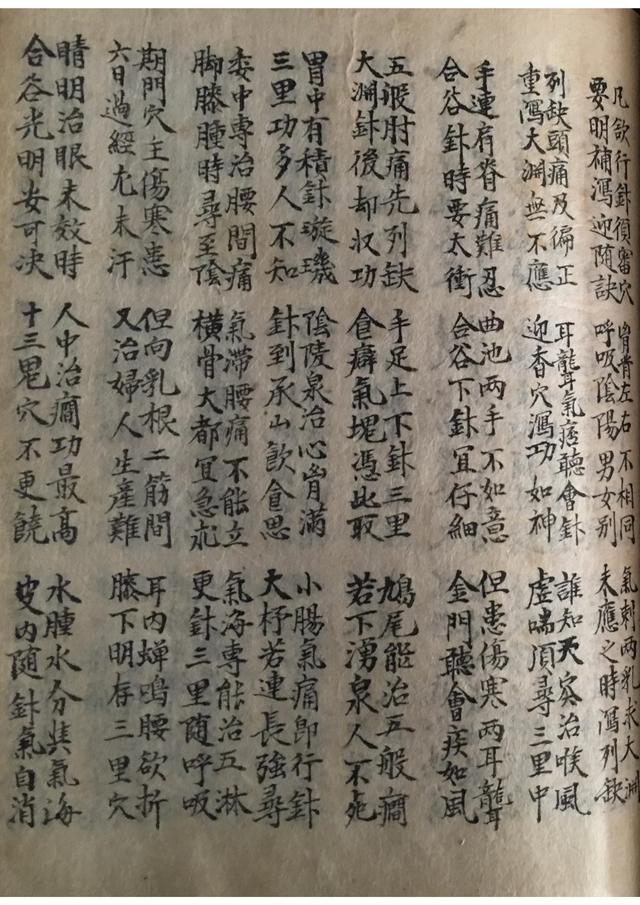 凡欲行針須審穴
要明補瀉迎随訣
胷背左右不相同
呼吸陰陽男女别
氣刺兩乳求大渊
未應之時瀉列缺
列缺頭痛及偏正
重瀉大渊無不應
耳聾氣痞聽會針
迎香穴瀉功如神
誰知天突治喉風
虚喘須尋三里中
手連肩脊痛難忍
合谷針時要太衝
曲池两手不如意
合谷下針宜仔細
但患傷寒两耳聾
金門聽會疾如風
五般肘痛先列缺
大渊針後却收功
手足上下針三里
食癖氣塊憑此取
鳩尾能治五般癇
若下湧泉人不死
胃中有積針璇璣
三里功多人不知
陰陵泉治心胷滿
針到承山飲食思
小腸氣痛即行針
大杼若連長強尋
委中專治腰間痛
脚膝腫時尋至陰
氣滯腰痛不能立
橫骨大都宜急
氣海專能治五淋
更針三里随呼吸
期門穴主傷寒患
六日過經尤未汗
但向乳根二筋間
又治婦人生産難
耳内蝉鳴腰欲折
膝下明存三里穴
睛明治眼未效時
合谷光明安可决
人中治癇功最高
十三鬼穴不更饒
水腫水分兼氣海
皮内随針氣自消